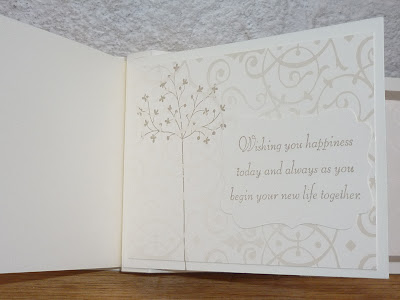 Wishing you happiness
today and always as you
begin your new life together.